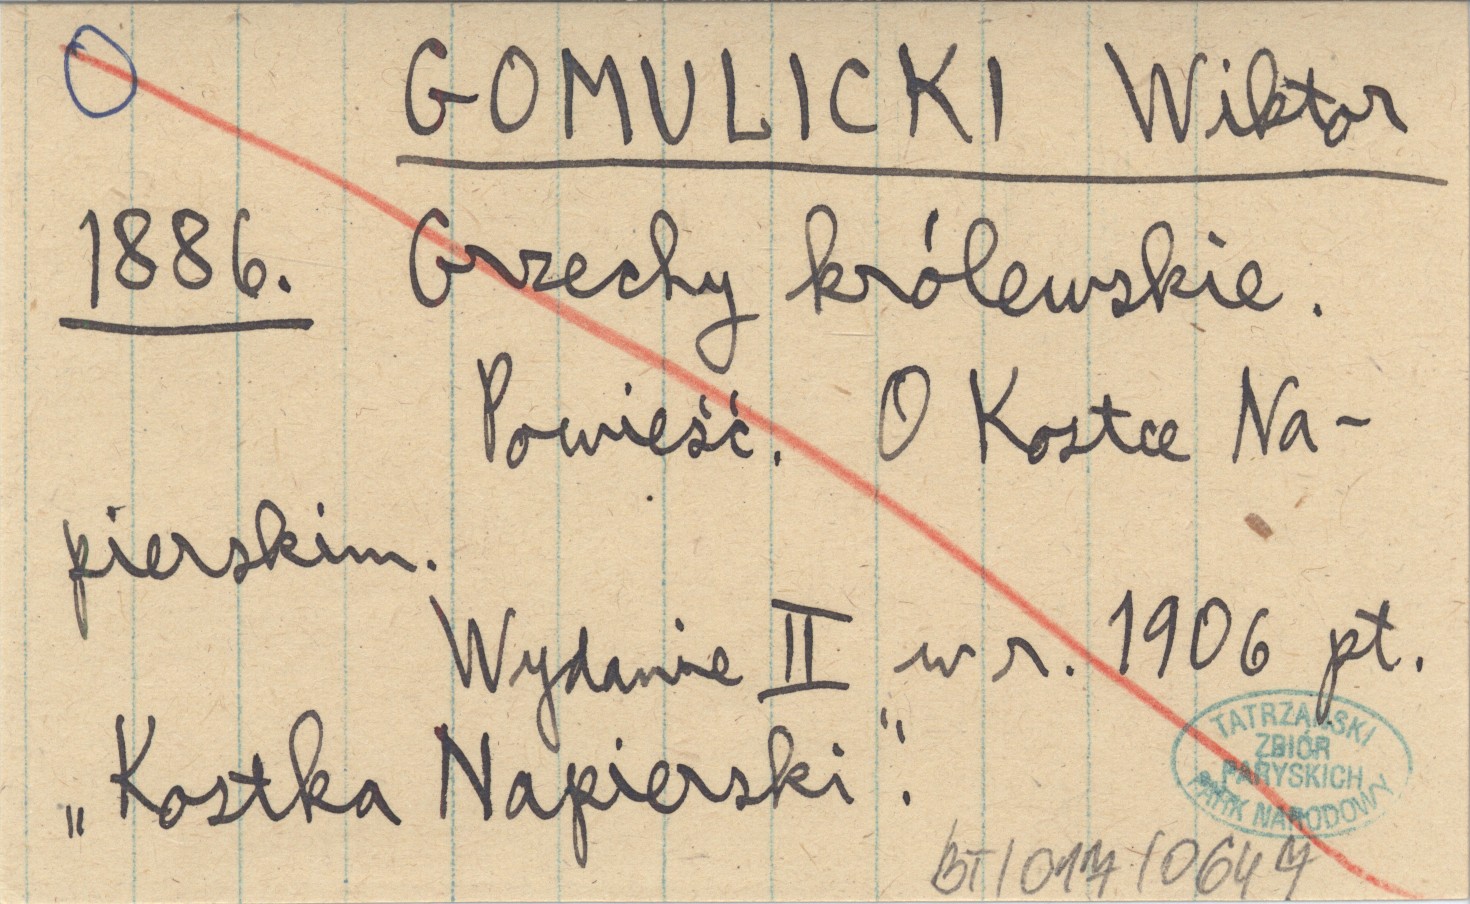 GOMULICKI Wiktor
1886. Grzechy królewskie.
Powieść. O Kostce Na-
pierskim.
Wydanie II w r. 1906 pt.
„Kostka Napierski".
TATRZAŃSKI
ZBIÓR
PARYSKICH
PARK NARODOWY
BT/017/0647